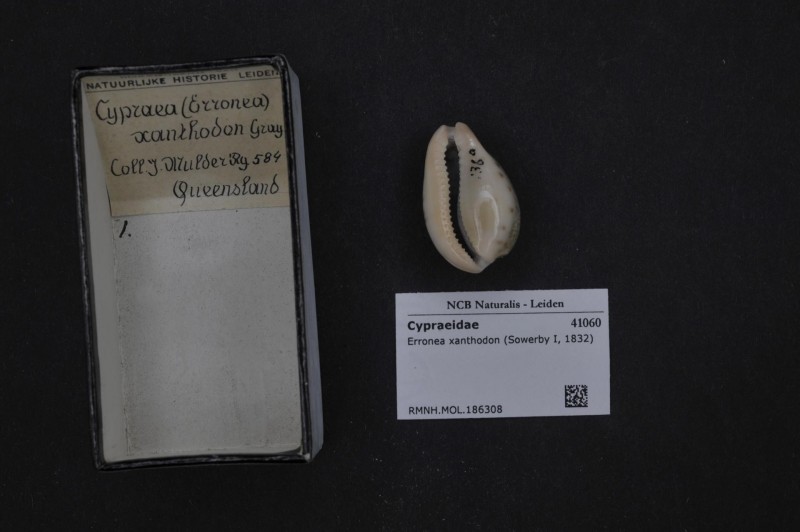 NATUURLIJKE HISTORIE LEIDEN
Cypraea (Erronea)
xanthodon Gray
Coll J. Mulder Rg 584
Queensland
1.
NCB Naturalis - Leiden
Cypraeidae 41060
Erronea xanthodon (Sowerby I, 1832)
RMNH.MOL.186308